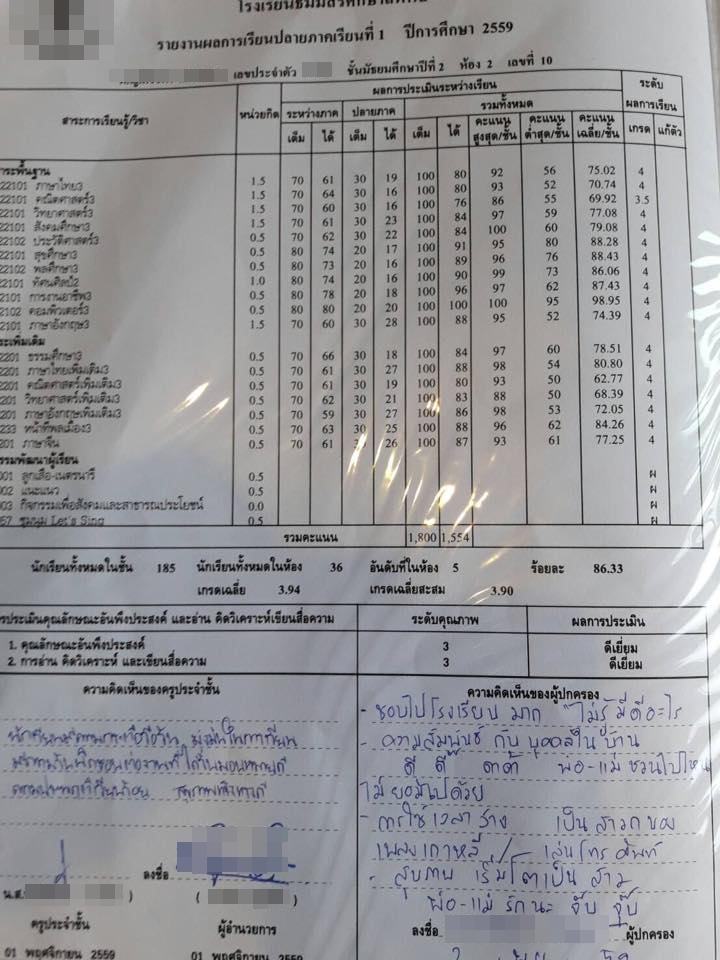 รายงานผลการเรียนปลายภาคเรียนที่ 1 ปีการศึกษา 2559
เลขประจำตัว ชั้นมัธยมศึกษาปีที่ 2 ห้อง 2 เลขที่ 10
สาระการเรียนรู้/วิชา หน่วยกิต ผลการประเมินระหว่างเรียน ระดับผลการเรียน
ระหว่างภาค ปลายภาค รวมทั้งหมด
เต็ม ได้ เต็ม ได้ เต็ม ได้ คะแนนสูงสุด/ชั้น คะแนนต่ำสุด/ชั้น คะแนนเฉลี่ย/ชั้น เกรด แก้ตัว
สาระพื้นฐาน
22101 ภาษาไทย3 1.5 70 61 30 19 100 80 92 56 75.02 4
22101 คณิตศาสตร์3 1.5 70 64 30 16 100 80 93 52 70.74 4
22101 วิทยาศาสตร์3 1.5 70 60 30 16 100 76 86 55 69.92 3.5
22101 สังคมศึกษา3 1.5 70 61 30 23 100 84 97 59 77.08 4
22102 ประวัติศาสตร์3 0.5 70 62 30 22 100 84 100 60 79.08 4
22101 สุขศึกษา3 0.5 80 74 20 17 100 91 95 80 88.28 4
22102 พลศึกษา3 0.5 80 73 20 16 100 89 96 76 88.43 4
22101 ทัศนศิลป์2 1.0 80 74 20 16 100 90 99 73 86.06 4
2101 การงานอาชีพ3 0.5 80 78 20 18 100 96 97 62 87.43 4
2102 คอมพิวเตอร์3 0.5 80 80 20 20 100 100 100 95 98.95 4
2101 ภาษาอังกฤษ3 1.5 70 60 30 28 100 88 95 52 74.39 4
ระเพิ่มเติม
2201 ธรรมศึกษา3 0.5 70 66 30 18 100 84 97 60 78.51 4
2201 ภาษาไทยเพิ่มเติม3 0.5 70 61 30 27 100 88 98 54 80.80 4
2201 คณิตศาสตร์เพิ่มเติม3 0.5 70 61 30 19 100 80 93 50 62.77 4
201 วิทยาศาสตร์เพิ่มเติม3 0.5 70 62 30 21 100 83 88 50 68.39 4
201 ภาษาอังกฤษเพิ่มเติม3 0.5 70 59 30 27 100 86 98 53 72.05 4
233 หน้าที่พลเมือง3 0.5 70 63 30 25 100 88 96 62 84.26 4
201 ภาษาจีน 0.5 70 61 26 100 87 93 61 77.25 4
กรรมพัฒนาผู้เรียน
001 ลูกเสือ-เนตรนารี 0.5 ผ
002 แนะแนว 0.5 ผ
003 กิจกรรมเพื่อสังคมและสาธารณประโยชน์ 0.0 ผ
57 ชุมนุม Let's Sing 0.5 ผ
รวมคะแนน 1,800 1,554
นักเรียนทั้งหมดในชั้น 185 นักเรียนทั้งหมดในห้อง 36 อันดับที่ในห้อง 5 ร้อยละ 86.33
เกรดเฉลี่ย 3.94 เกรดเฉลี่ยสะสม 3.90
รประเมินคุณลักษณะอันพึงประสงค์ และอ่าน คิดวิเคราะห์เขียนสื่อความ ระดับคุณภาพ ผลการประเมิน
1. คุณลักษณะอันพึงประสงค์ 3 ดีเยี่ยม
2. การอ่าน คิดวิเคราะห์ และเขียนสื่อความ 3 ดีเยี่ยม
ความคิดเห็นของครูประจำชั้น
ลงชื่อ
น.ส.
ครูประจำชั้น ผู้อำนวยการ
01 พฤศจิกายน 2559 01 พฤศจิกายน 2559
ความคิดเห็นของผู้ปกครอง
- ชอบไปโรงเรียน มาก ไม่รู้ มีดีอะไร
- ความสัมพันธ์ กับ บุคคลในบ้าน
ดี ดี ด่าด่า พ่อ-แม่ ชวนไปไหน
ไม่ยอมไปด้วย
- การใช้เวลาว่าง เป็นสาวกของ
เพลงเกาหลี / เล่นโทรศัพท์
- สุขภาพ เริ่มโตเป็นสาว
พ่อ-แม่ รักนะ จุ๊บ จุ๊บ
ลงชื่อ ผู้ปกครอง